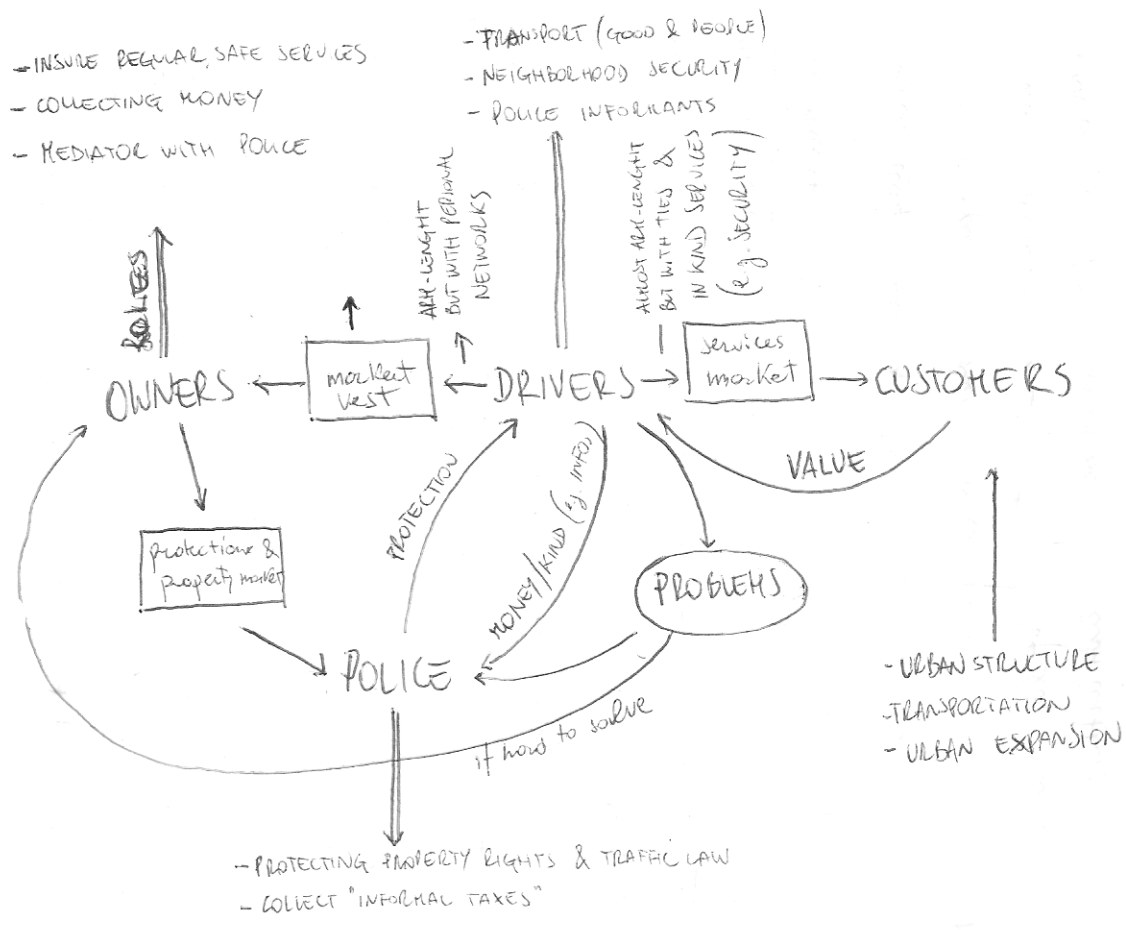 - INSURE REGULAR, SAFE SERVICES
- COLLECTING MONEY
- MEDIATOR WITH POLICE
- TRANSPORT (GOOD & PEOPLE)
- NEIGHBORHOOD SECURITY
- POLICE INFORMANTS
ARM-LENGHT
BUT WITH PERSONAL
NETWORKS
ALMOST ARM-LENGHT
BUT WITH TIES &
IN KIND SERVICES
(e.g. SECURITY)
OWNERS
market
vest
DRIVERS
services
market
CUSTOMERS
VALUE
PROTECTION
MONEY/KIND (e.g. INFO)
protection &
property market
PROBLEMS
POLICE
if hard to solve
- URBAN STRUCTURE
- TRANSPORTATION
- URBAN EXPANSION
- PROTECTING PROPERTY RIGHTS & TRAFFIC LAW
- COLLECT "INFORMAL TAXES"